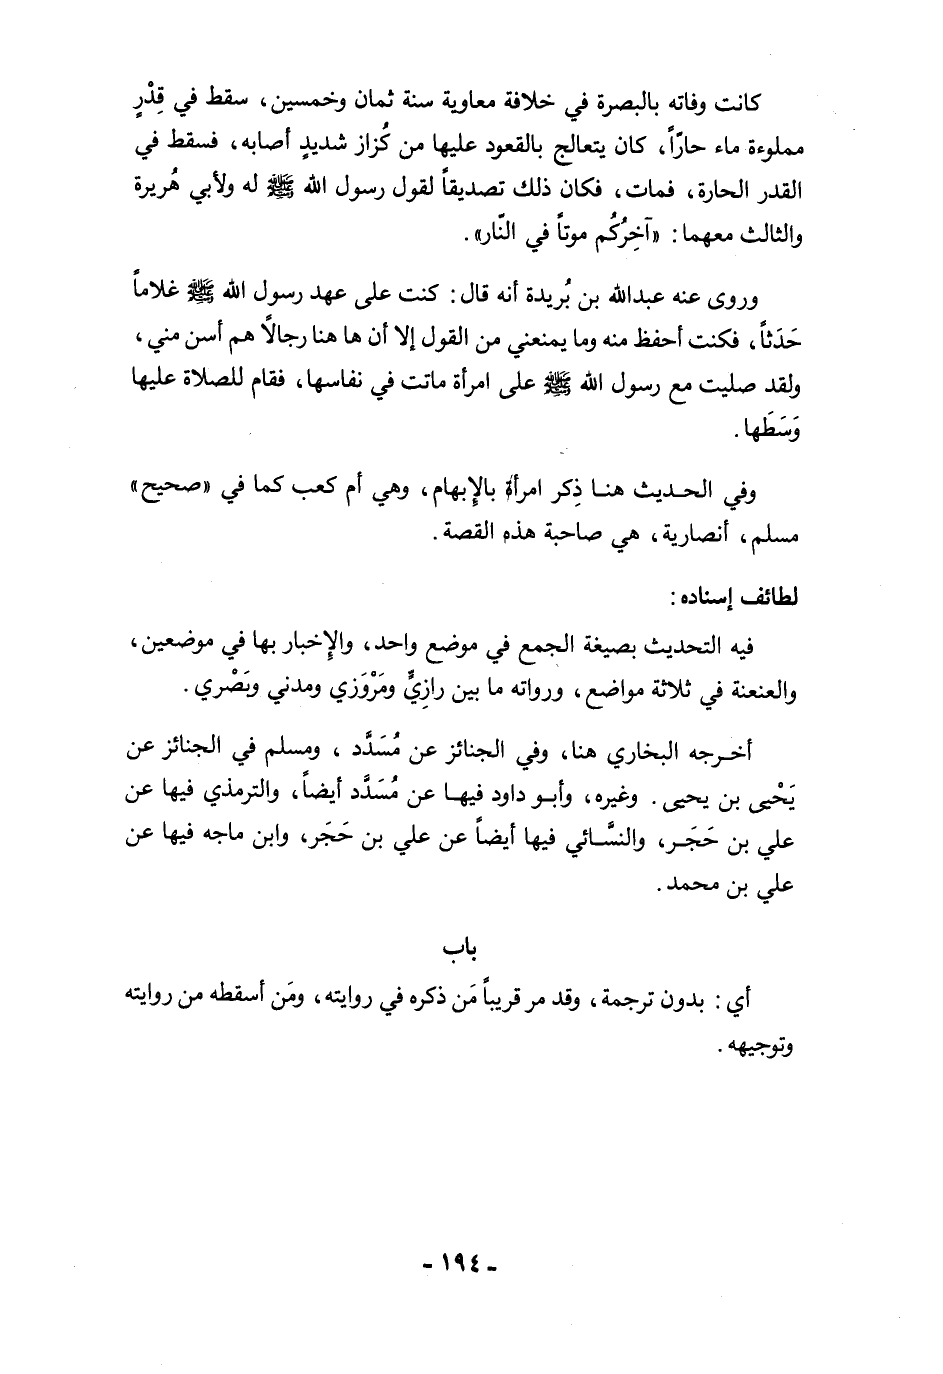 كانت وفاته بالبصرة في خلافة معاوية سنة ثمان وخمسين، سقط في قِدْرٍ
مملوءة ماء حارّاً، كان يتعالج بالقعود عليها من كُزاز شديدٍ أصابه، فسقط في
القدر الحارة، فمات، فكان ذلك تصديقاً لقول رسول الله ﷺ له ولأبي هُريرة
والثالث معهما: «آخِرُكُم موتاً في النّار».
وروى عنه عبدالله بن بُريدة أنه قال: كنت على عهد رسول الله ﷺ غلاماً
حَدَثاً، فكنت أحفظ منه وما يمنعني من القول إلا أن ها هنا رجالاً هم أسن مني،
ولقد صليت مع رسول الله ﷺ على امرأة ماتت في نفاسها، فقام للصلاة عليها
وَسَطَها.
وفي الحديث هنا ذِكر امرأة بالإبهام، وهي أم كعب كما في «صحيح»
مسلم، أنصارية، هي صاحبة هذه القصة.
لطائف إسناده:
فيه التحديث بصيغة الجمع في موضع واحد، والإخبار بها في موضعين،
والعنعنة في ثلاثة مواضع، ورواته ما بين رازِيٍّ ومَرْوَزي ومدني وبَصْري.
أخرجه البخاري هنا، وفي الجنائز عن مُسَدَّد، ومسلم في الجنائز عن
يَحْيى بن يحيى. وغيره، وأبو داود فيها عن مُسَدَّد أيضاً، والترمذي فيها عن
علي بن حَجَر، والنَّسائي فيها أيضاً عن علي بن حَجَر، وابن ماجه فيها عن
علي بن محمد.
باب
أي: بدون ترجمة، وقد مر قريباً مَن ذكره في روايته، ومَن أسقطه من روايته
وتوجيهه.
- ١٩٤ -